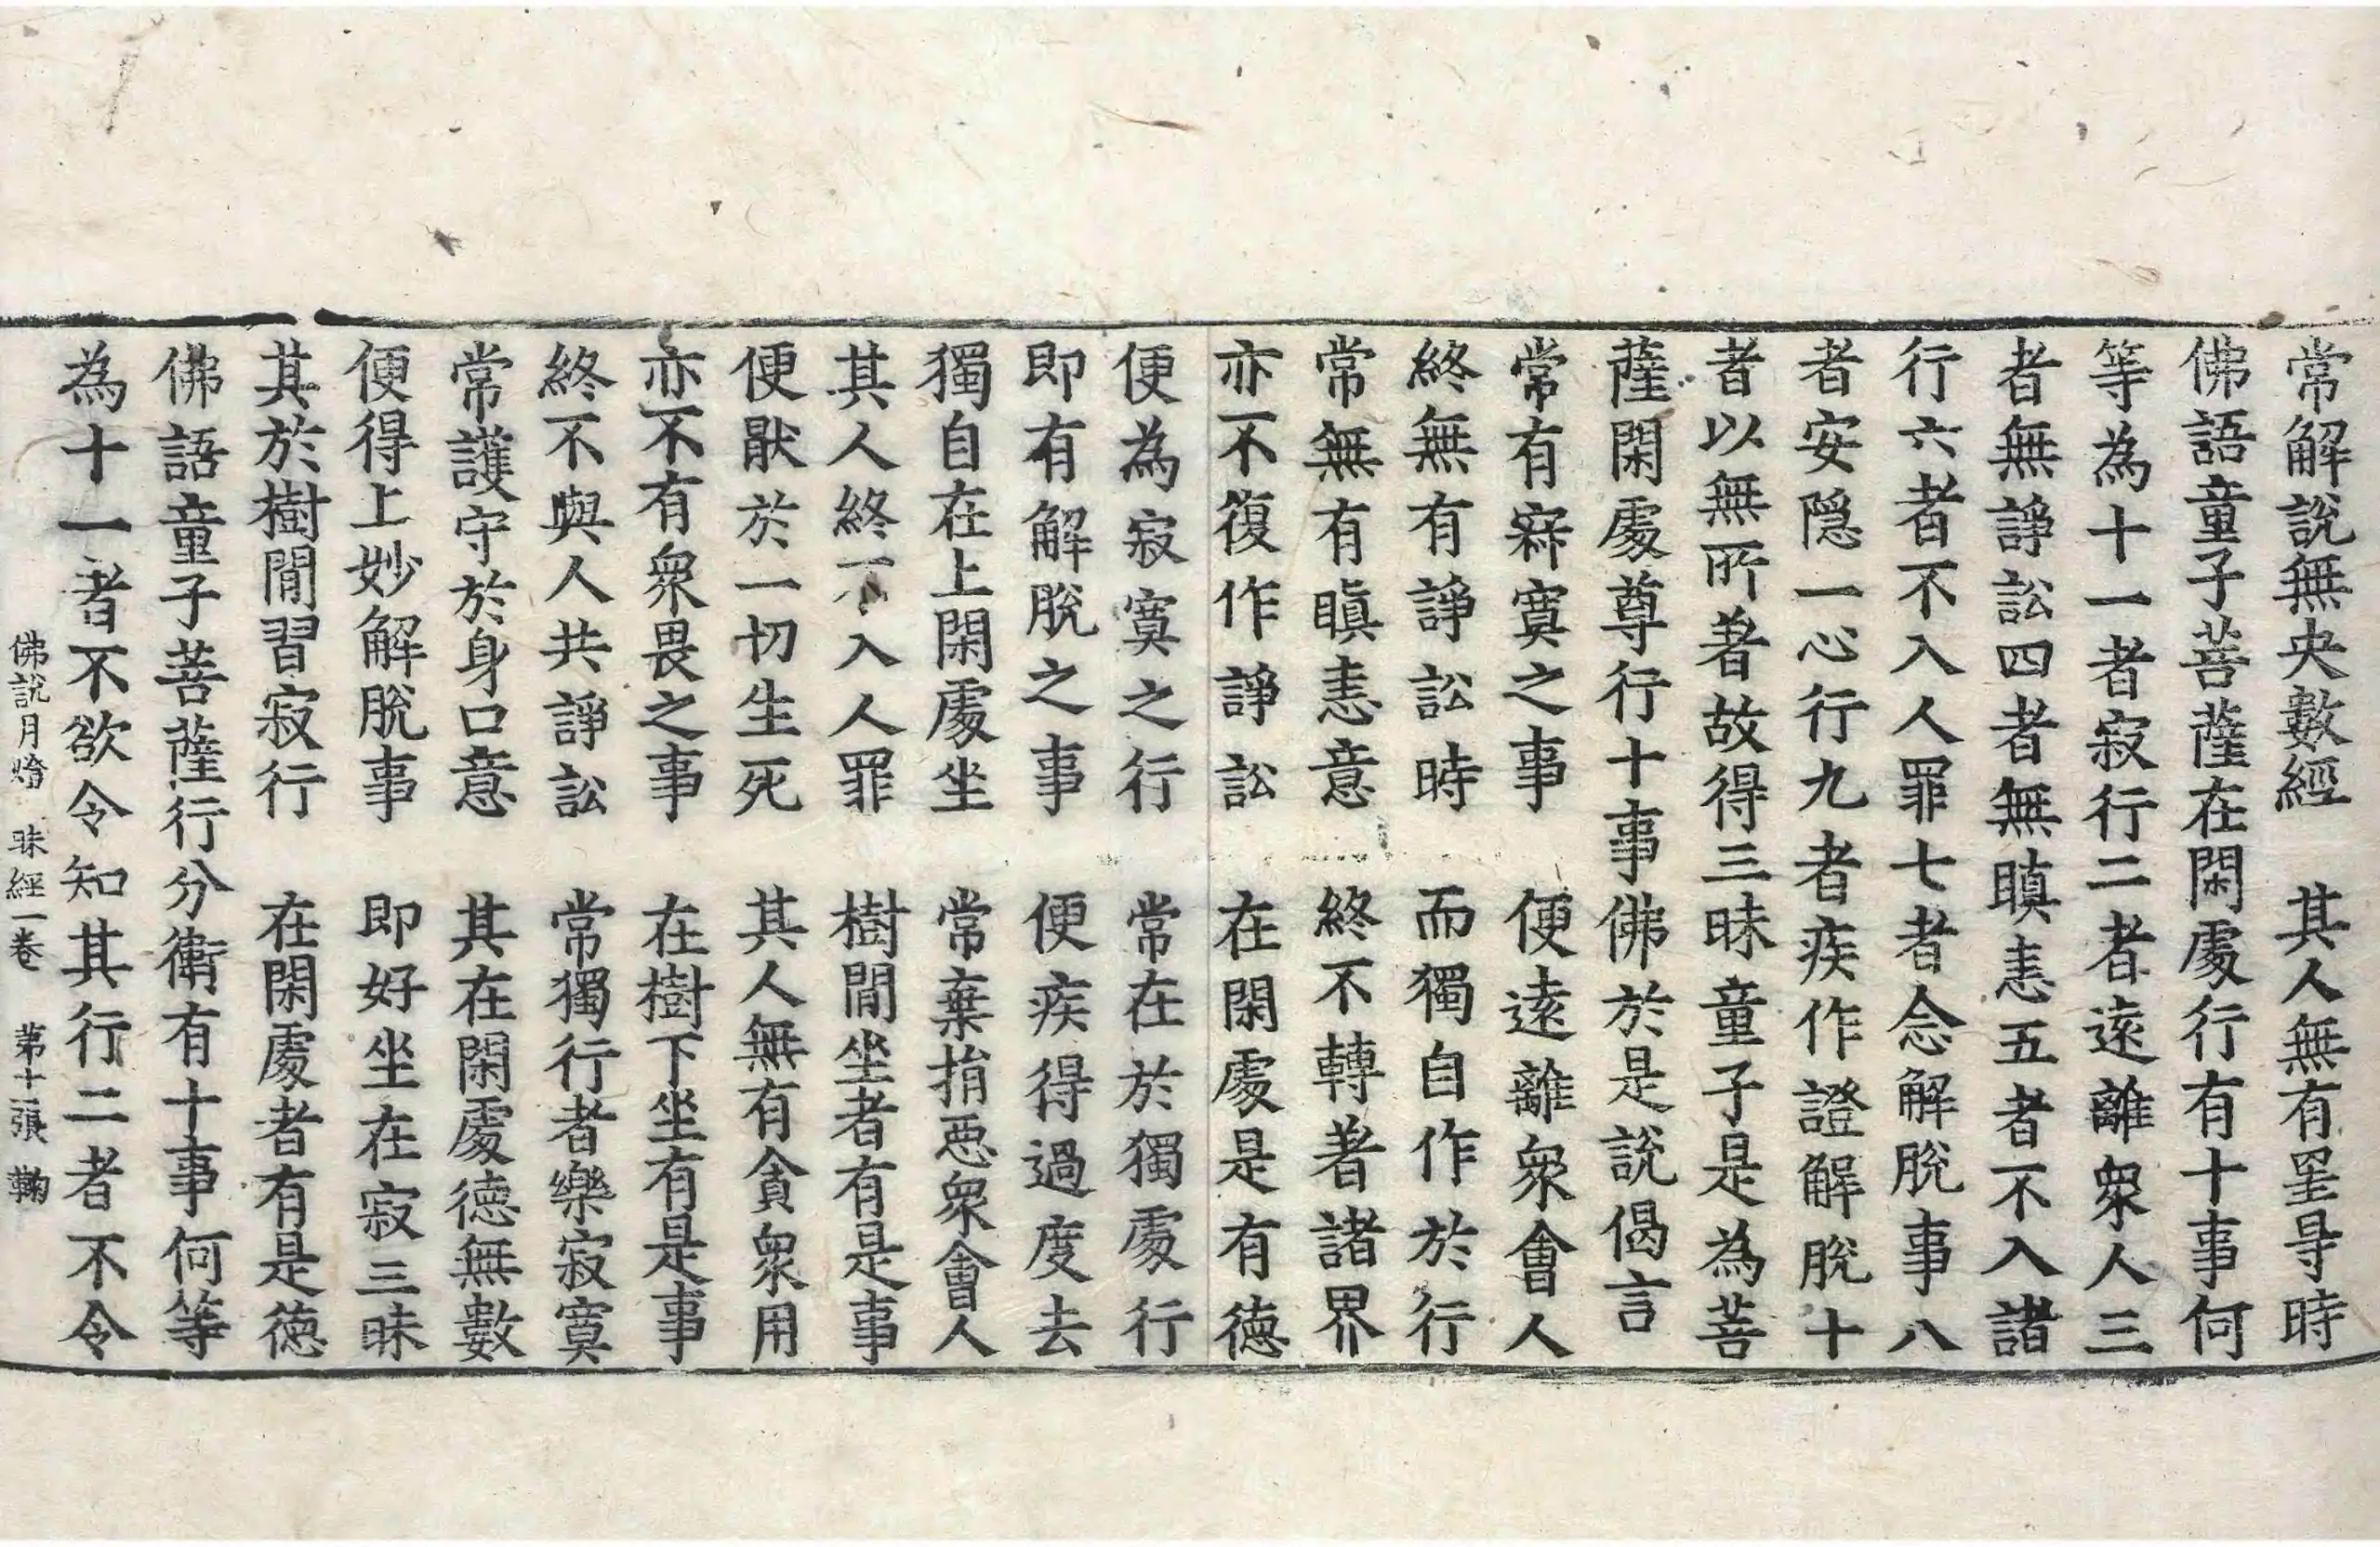 常解說無央數經　其人無有罣㝵時
佛語童子菩薩在閑處行有十事何
等為十一者寂行二者遠離衆人三
者無諍訟四者無瞋恚五者不入諸
行六者不入人罪七者念解脫事八
者安隱一心行九者疾作證解脫十
者以無所著故得三昧童子是為菩
薩閑處尊行十事佛於是說偈言
常有寂寞之事　便遠離衆會人
終無有諍訟時　而獨自作於行
常無有瞋恚意　終不轉著諸界
亦不復作諍訟　在閑處是有德
便為寂寞之行　常在於獨處行
即有解脫之事　便疾得過度去
獨自在上閑處坐　常棄捐惡衆會人
其人終不入人罪　樹閒坐者有是事
便猒於一切生死　其人無有貪衆用
亦不有衆畏之事　在樹下坐有是事
終不與人共諍訟　常獨行者樂寂寞
常護守於身口意　其在閑處德無數
便得上妙解脫事　即好坐在寂三昧
其於樹閒習寂行　在閑處者有是德
佛語童子菩薩行分衛有十事何等
為十一者不欲令知其行二者不令
佛說月燈　昧經一卷　第十二張　鞠